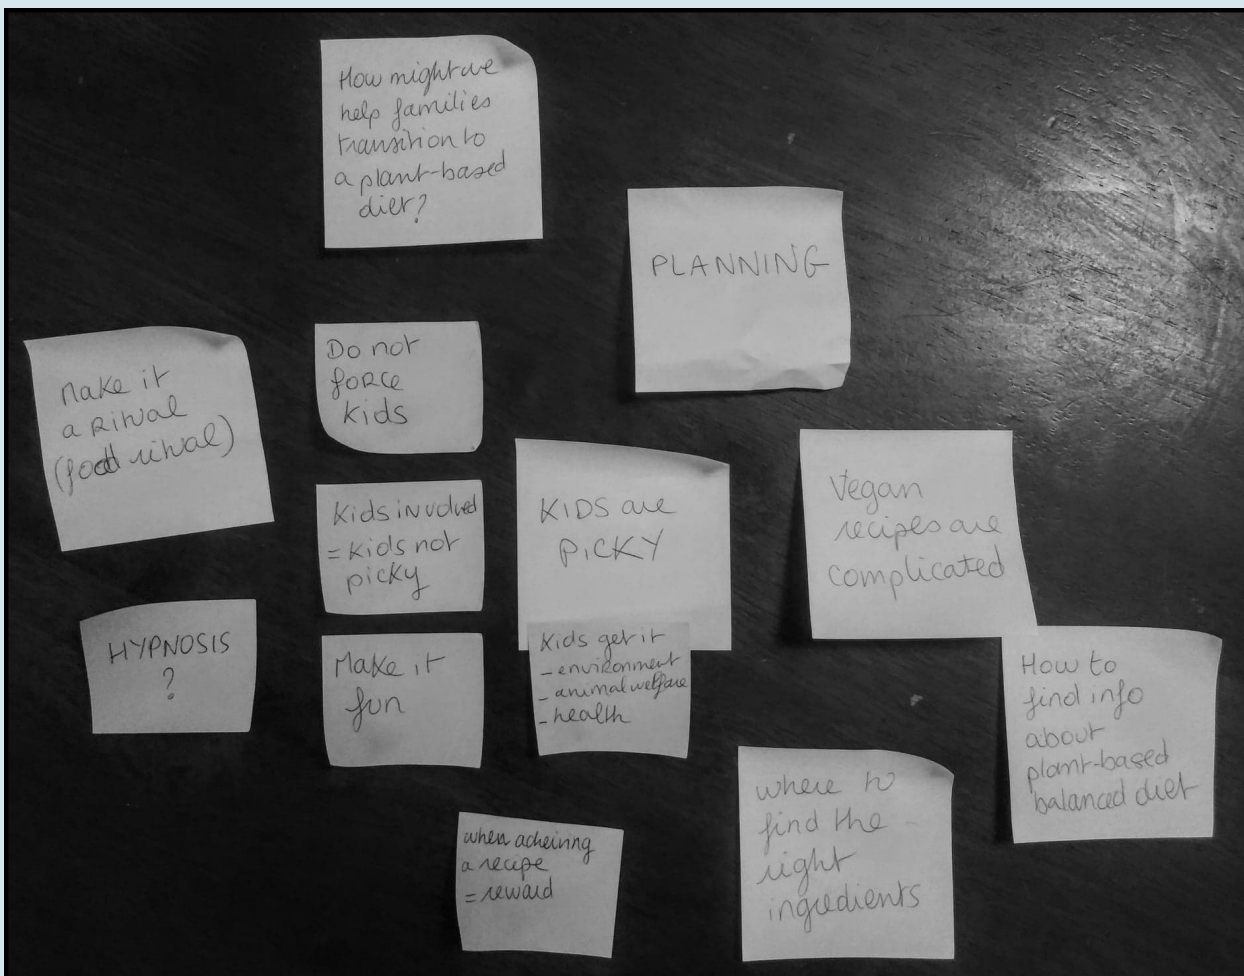 How might we
help families
transition to
a plant-based
diet?
PLANNING
Make it
a RITUAL
(food ritual)
Do not
foRCe
kids
Kids iNvolved
= kids not
picky
KIDS are
PICKY
Vegan
recipes are
complicated
HYPNOSIS
?
Make it
fun
Kids get it
- environment
- animal welfare
- health
How to
find info
about
plant-based
balanced diet
where to
find the
right
ingredients
when acheiving
a recipe
= reward